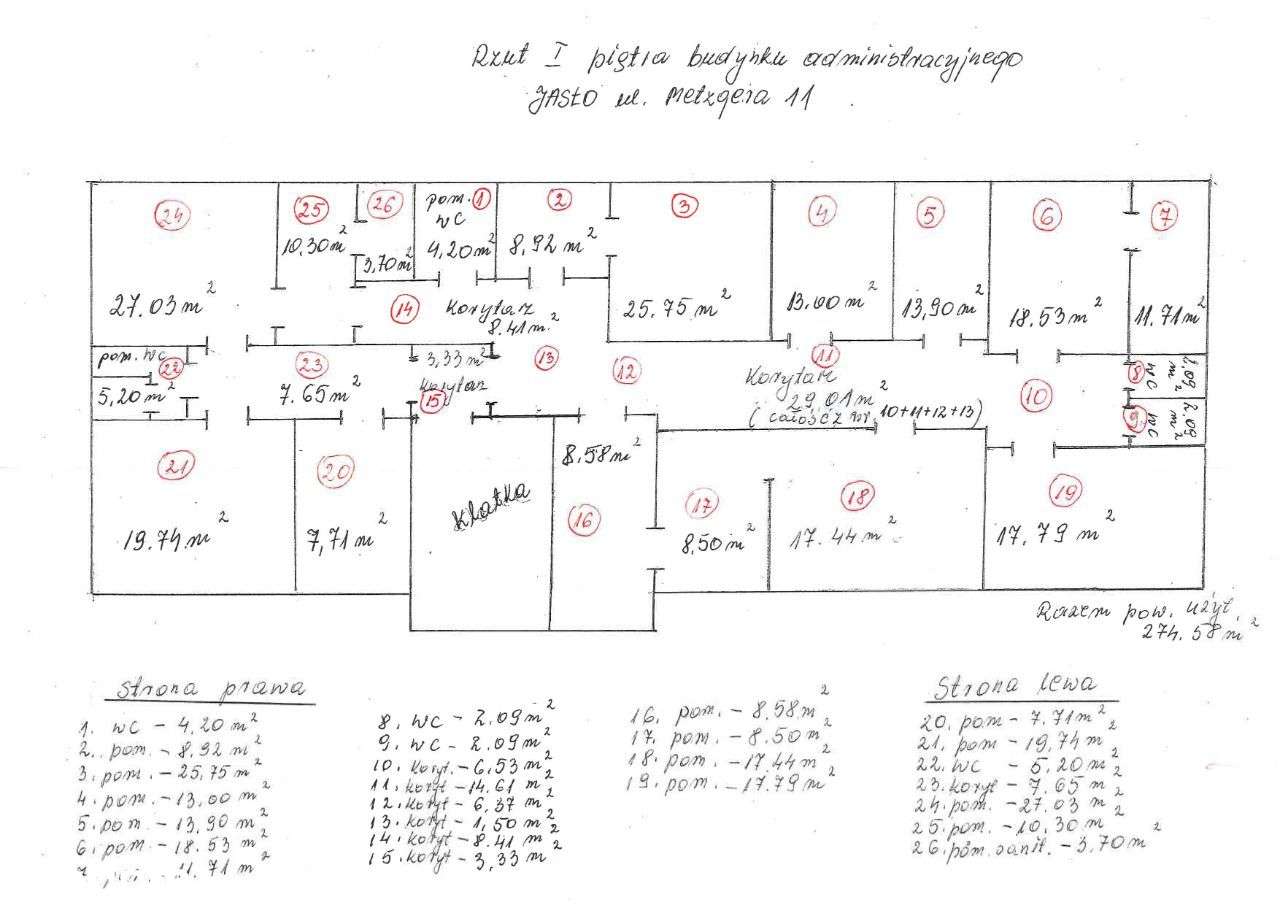 Rzut I piętra budynku administracyjnego
JASŁO ul. Metzgera 11
24
25
26
pom. wc
1
2
3
4
5
6
7
27.03 m²
10,30 m²
3,70 m²
4,20 m²
8,92 m²
25.75 m²
13.00 m²
13,90 m²
18.53 m²
11.71 m²
14
Korytarz
8.41 m²
pom. wc
22
5,20 m²
23
7.65 m²
3,33 m²
Korytarz
15
13
12
11
Korytarz
29.01 m²
(całość z nr. 10+11+12+13)
10
8
wc
2.09 m²
9
wc
2.09 m²
21
19.74 m²
20
7,71 m²
Klatka
8.58 m²
16
17
8,50 m²
18
17.44 m²
19
17.79 m²
Razem pow. użyt.
274.58 m²
Strona prawa
1. wc - 4,20 m²
2. pom. - 8,92 m²
3. pom. - 25,75 m²
4. pom. - 13,00 m²
5. pom - 13,90 m²
6. pom - 18.53 m²
11.71 m²
8. wc - 2.09 m²
9. wc - 2.09 m²
10. koryt. - 6,53 m²
11. koryt - 14.61 m²
12. koryt - 6,37 m²
13. koryt - 1,50 m²
14. koryt - 8.41 m²
15. koryt - 3,33 m²
16. pom. - 8.58 m²
17. pom. - 8.50 m²
18. pom. - 17,44 m²
19. pom. - 17.79 m²
Strona lewa
20. pom - 7.71 m²
21. pom - 19,74 m²
22. wc - 5,20 m²
23. koryt - 7.65 m²
24. pom. - 27.03 m²
25. pom. - 10,30 m²
26. pom. sanit. - 3,70 m²